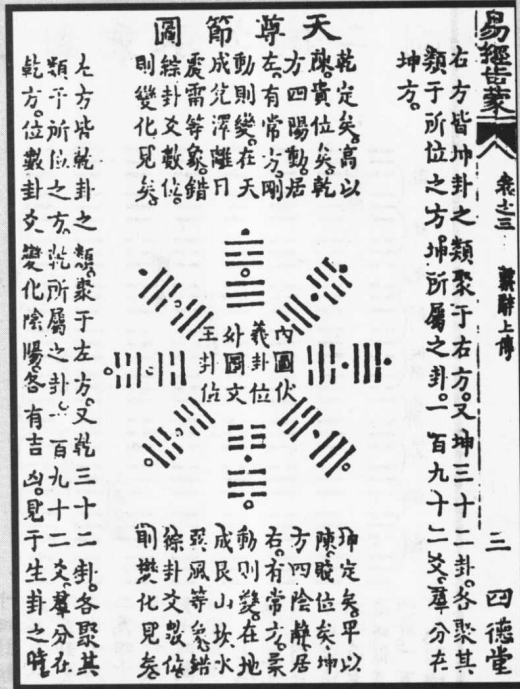 易經啓蒙
卷之三
繫辭上傳
三
四德堂
右方皆坤卦之類聚于右方又坤三十二卦各聚其
類于所位之方坤所屬之卦一百九十二爻羣分在
坤方
天尊節圖
乾定矣高以
陳貴位矣乾
方四陽動居
左有常方剛
動則變在天
成兌澤離日
震雷等象錯
綜卦爻數位
則變化見矣
內圖伏
羲卦位
外圖文
王卦位
坤定矣卑以
陳賤位矣坤
方四陰靜居
右有常方柔
動則變在地
成艮山坎水
巽風等象錯
綜卦爻數位
則變化見矣
左方皆乾卦之類聚于左方又乾三十二卦各聚其
類于所位之方乾所屬之卦一百九十二爻羣分在
乾方位數卦爻變化陰陽各有吉凶見于生卦之時